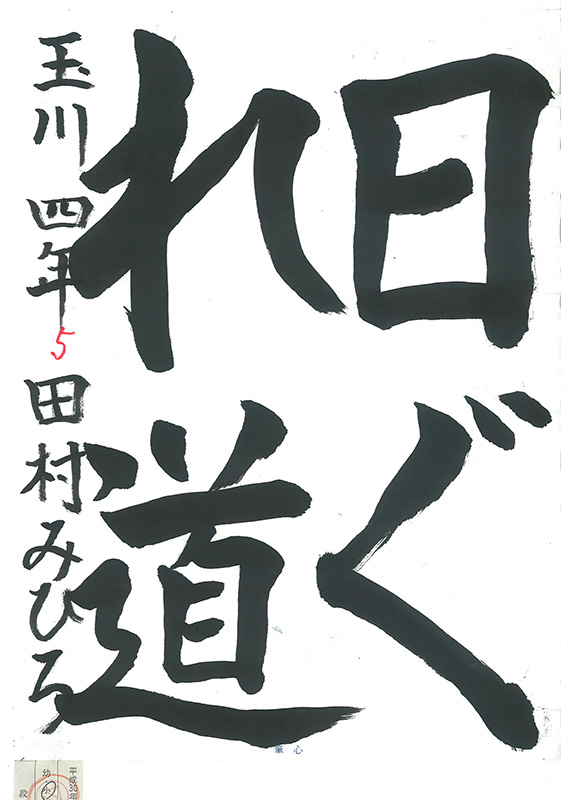 日ぐ
れ道
玉川 四年 5 田村みひろ
筆心
平成30年
幼
段